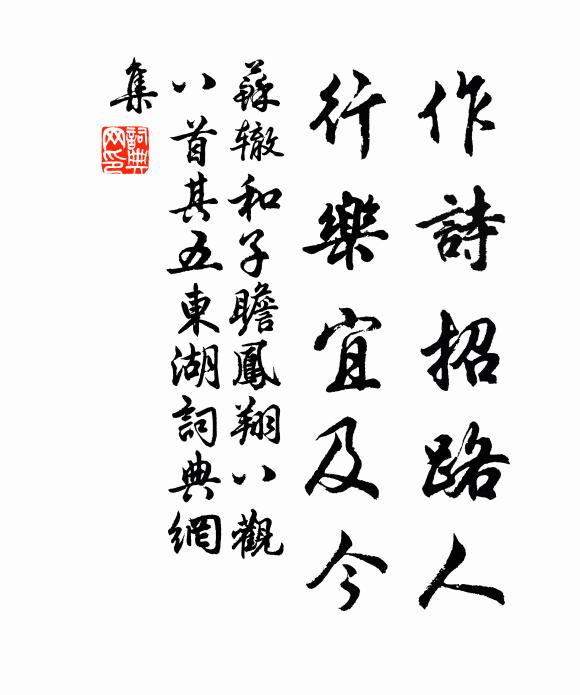 作詩招路人
行樂宜及今
蘇辙和子瞻鳳翔八觀
八首其五東湖詞典網
集
詞典网印